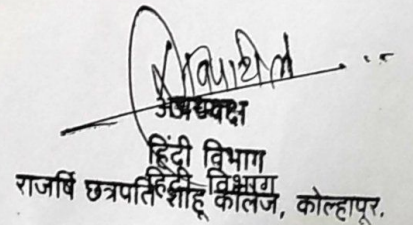 अध्यक्ष
हिंदी विभाग
हिंदी विभाग
राजर्षि छत्रपति शाहू कॉलेज, कोल्हापूर.